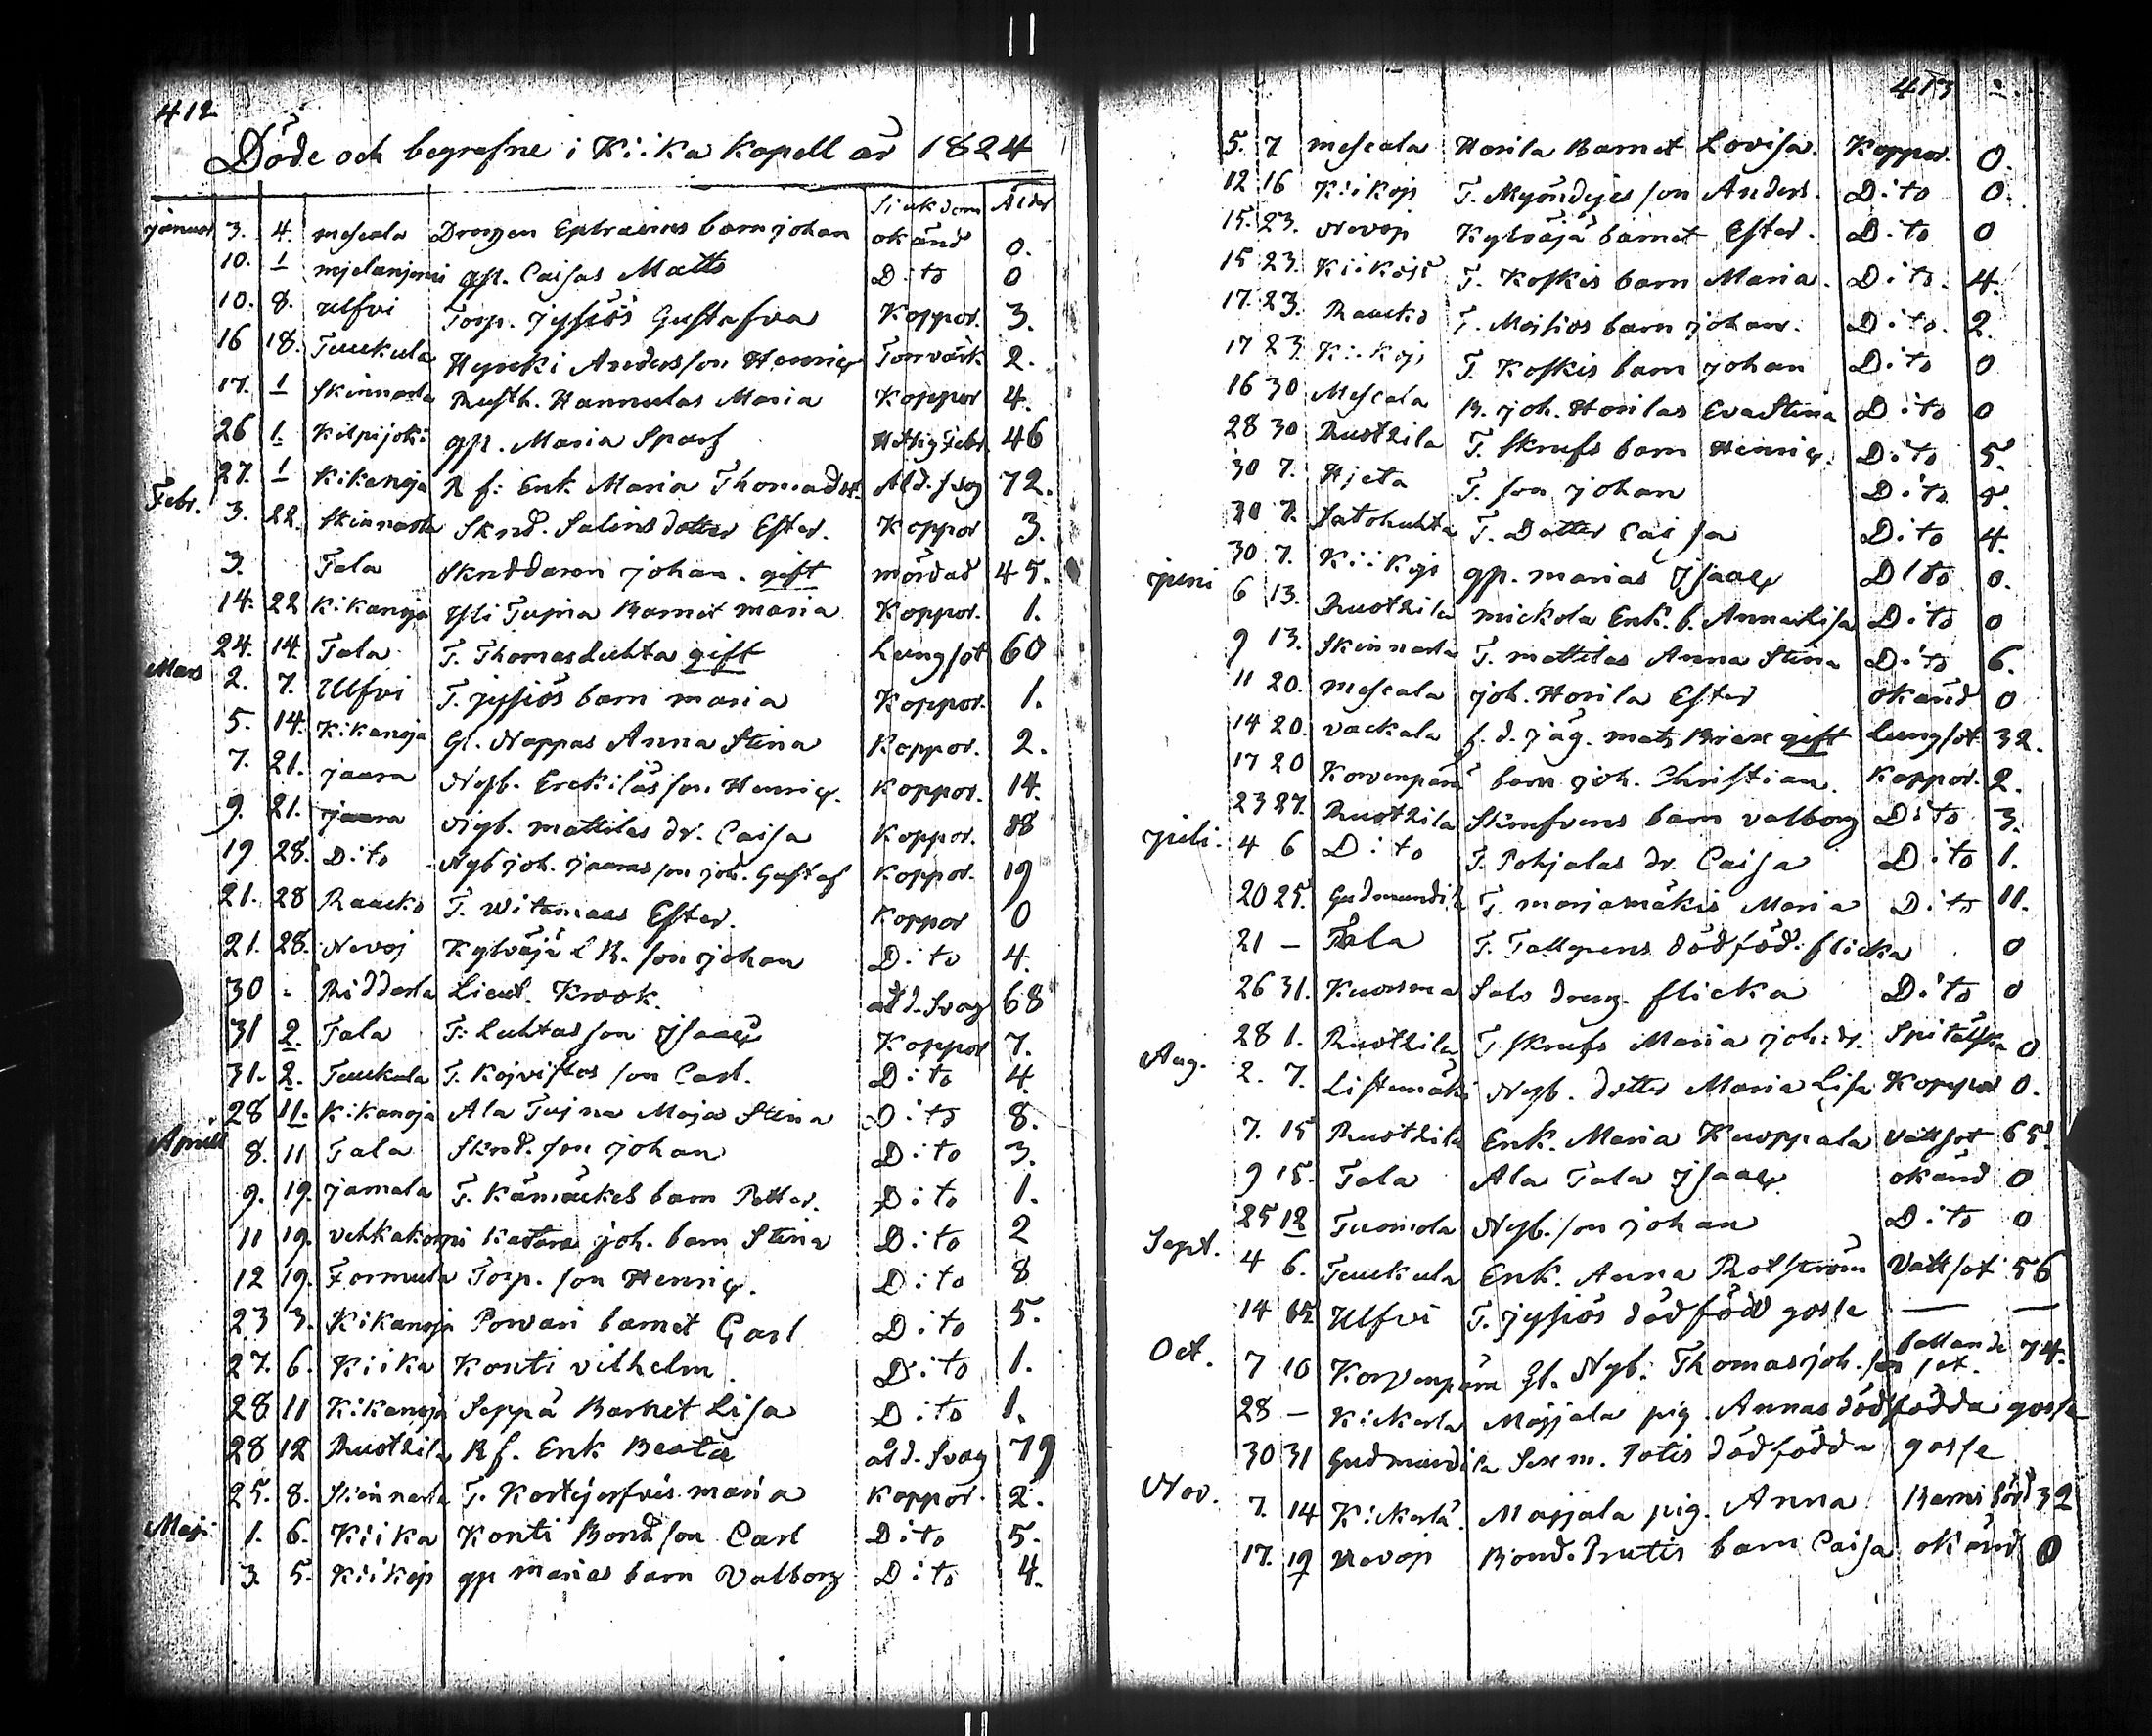 412
Döde och begrafne i Kiika Kapell år 1824
Siukdom Ålder
januari 3. 4. mescala Drengen Ephraims barn johan okänd 0.
10. 1 gp. Caisas Matts Dito 0
10. 8. Ulfvi Torp. jysiös Gustafva Koppor. 3.
16 18. Tuukula Hyrcki Andersson Henriq 2.
17. 1 Skinnarla Rusth. Hannulas Maria Koppor 4.
26 1. Kilpijoki gp. Maria Sparf Hetsig Feber 46
27. 1 Kikanoja R f: Enk. Maria Thomasdr. Ald. svag 72.
Febr. 3. 22. Skinnarla Sknd. Salins dotter Ester. Koppor 3.
3. Tala Skrdd aren johan. gift mördad 45.
14. 22 Kikanoja Yli Tupna Barnet maria Koppor. 1.
24. 14. Tala T. Thomas Luhta gift Lungsot 60
Mars 2. 7. Ulfvi T. jysiös barn maria Koppor. 1.
5. 14. Kikanoja Gl. Noppas Anna Stina Koppor. 2.
7. 21. jaara Nyb. Erckiläs son Henriq. Koppor. 14.
9. 21. jaara Nyb. mattilas dr. Caisa Koppor. 18
19 28. Dito Nyb joh. jaaras son joh. Gustaf Koppor. 19
21. 28 Raucko T. Witamaas Ester. Koppor 0
21. 28. Nevoj Kylväjä L B. son johan Dito 4.
30 - Ridderla Lieut. Krook. ald. svag 68
31 2. Tala T: Luhtas son Isaaq Koppor 7.
31. 2. Tuukula T. Kojvistos son Carl. Dito 4.
28 11. Kikanoja Ala Tujna Maja Stina Dito 8.
Aprill 8. 11 Tala Sknd. son johan Dito 3.
9. 19. jamala T. Kämäckes barn Petter. Dito 1.
11 19. vehkakorpi Katara joh. barn Stina Dito 2
12 19. Formula Torp. son Henriq. Dito 8
23 3. Kikanoja Porvari barnet Carl Dito 5.
27. 6. Kiika Konti vilhelm. Dito 1.
28 11 Kikanoja Seppä Barnet Lisa Dito 1.
28 12 Ruothila R f. Enk Beata ald. svag 79
25. 8. Skinnarla T. Kortejerfvis maria Koppor. 2.
Maji 1. 6. Kiika Konti Bond son Carl Dito 5.
3. 5. Kiikojs gp marias barn Valborg Dito 4.
413
5. 7 mescala Horila Barnet Lovisa. Koppor. 0.
12 16 Kiikojs T. son Anders. Dito 0.
15. 23. Nevoj Kylväjä barnet Ester. Dito 0
15 23. Kiikojs T. Koskis barn Maria. Dito. 4.
17. 23. Raucko T. Moisios barn johan. Dito. 2.
17 23 Kiikojs T. Koskis barn johan Dito 0
16 30 Mescala B. joh. Horilas Eva Stina Dito 0
28 30 Ruothila T. Skrufs barn Henriq. Dito 5.
30 7. Hjeta T. son johan Dito
30 7. Satohuhta T. Dotter Caisa Dito 4.
30 7. Kiikojs gp. marias Isaaq Dito 0.
juni 6 13. Ruothila mickola Enk. b. Anna Lisa Dito 0
9 13. Skinnarla T. mattilas Anna Stina Dito 6.
11 20. mescala joh. Horila Ester okänd 0
14 20. vackala f. d. jäg. mats Brax gift Lungsot 32.
17 20 Korvenpää barn joh. Christian. Koppor. 2.
23 27. Ruothila barn valborg Dito 3.
juli. 4 6 Dito T. Pohjalas dr. Caisa Dito 1.
20 25. Gudmundila T. marjamäkis Maria Dito 11.
21 - Tala T. Tallgrens dödföd. flicka 0
26 31. Kuorsma Salo dreng. flicka Dito 0
28 1. Ruothila T Skrufs Maria joh. dr. 0
Aug. 2. 7. Listemäki Nyb. dotter Maria Lisa Koppor 0.
7. 15 Ruothila Enk. Maria Kuoppala vattsot 65.
9 15. Tala Ala Tala Isaaq okänd 0
25 12 Tuomola Nyb. son johan Dito 0
Sept. 4 6. Tuukula Enk. Anna Rotström Vattsot 56
14 15 Ulfvi T. jysiös dödfödd gosse — —
Oct. 7 10 Korvenpää Gl. Nyb. Thomas joh. son fallande sot. 74.
28 - Kickerla Majjala pig. Annas dödfödda gosse
30 31 Gudmundila Sexm. Potis dödfödda gosse
Nov. 7. 14 Kickerla. Majjala pig. Anna Barnsbörd 32
17. 19 Nevoj Bond. Prutis barn Caisa okänd 0